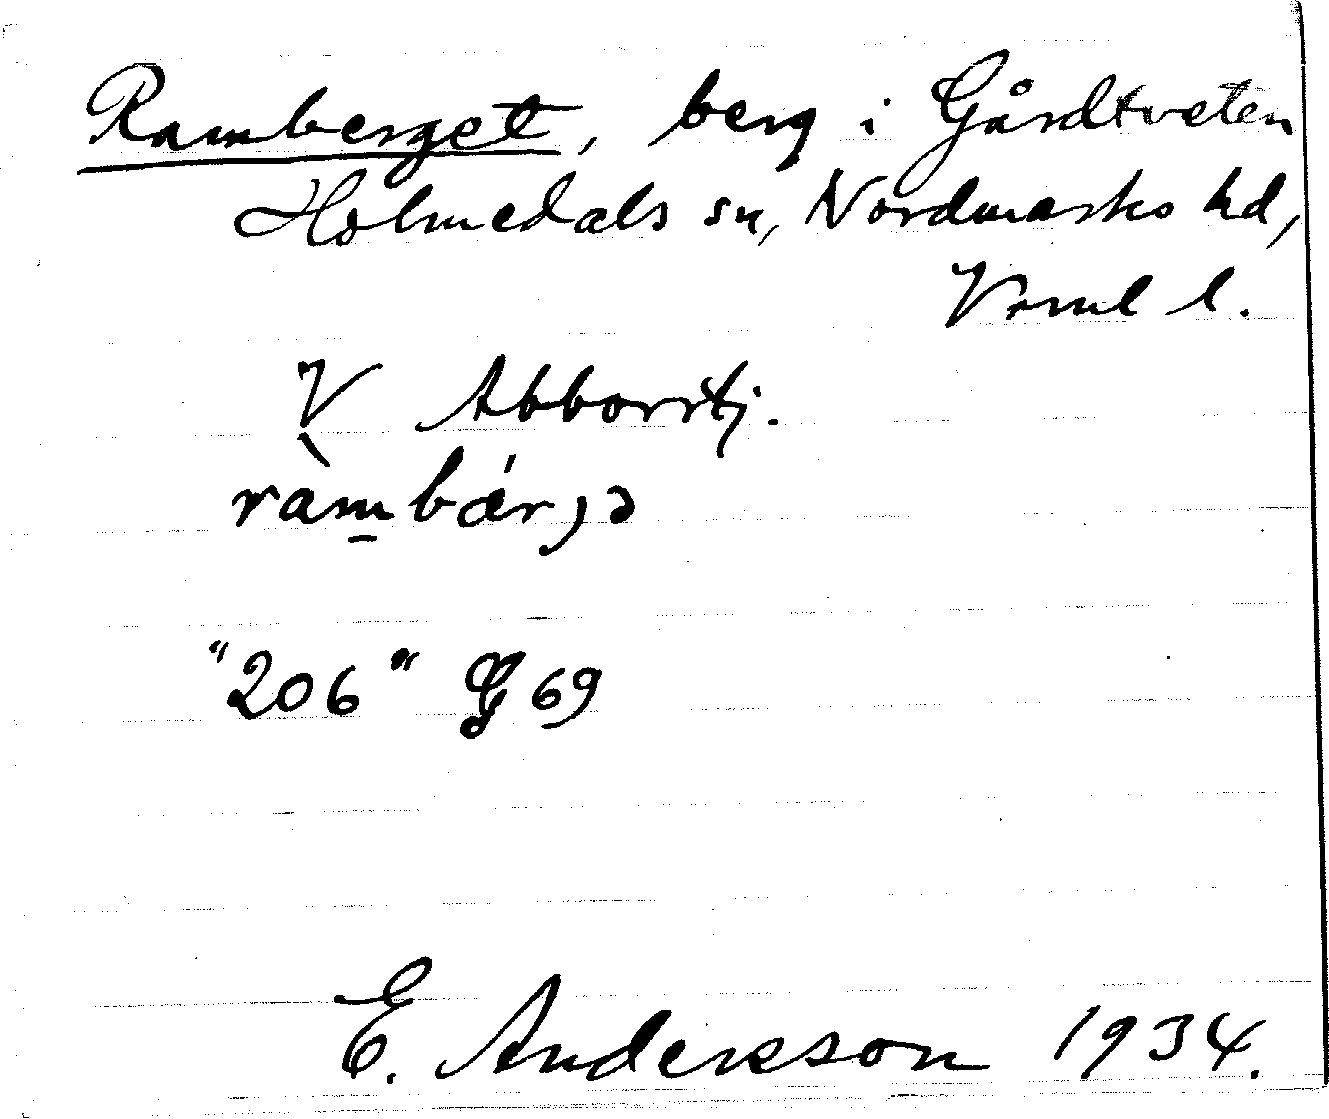 Ramberget, berg i Gårdtveten
Holmedals sn, Nordmarks hd,
Verml l.
V Abborrtj.
ràm̲bǽrjɔ
"206" G 69
E. Andersson 1934.